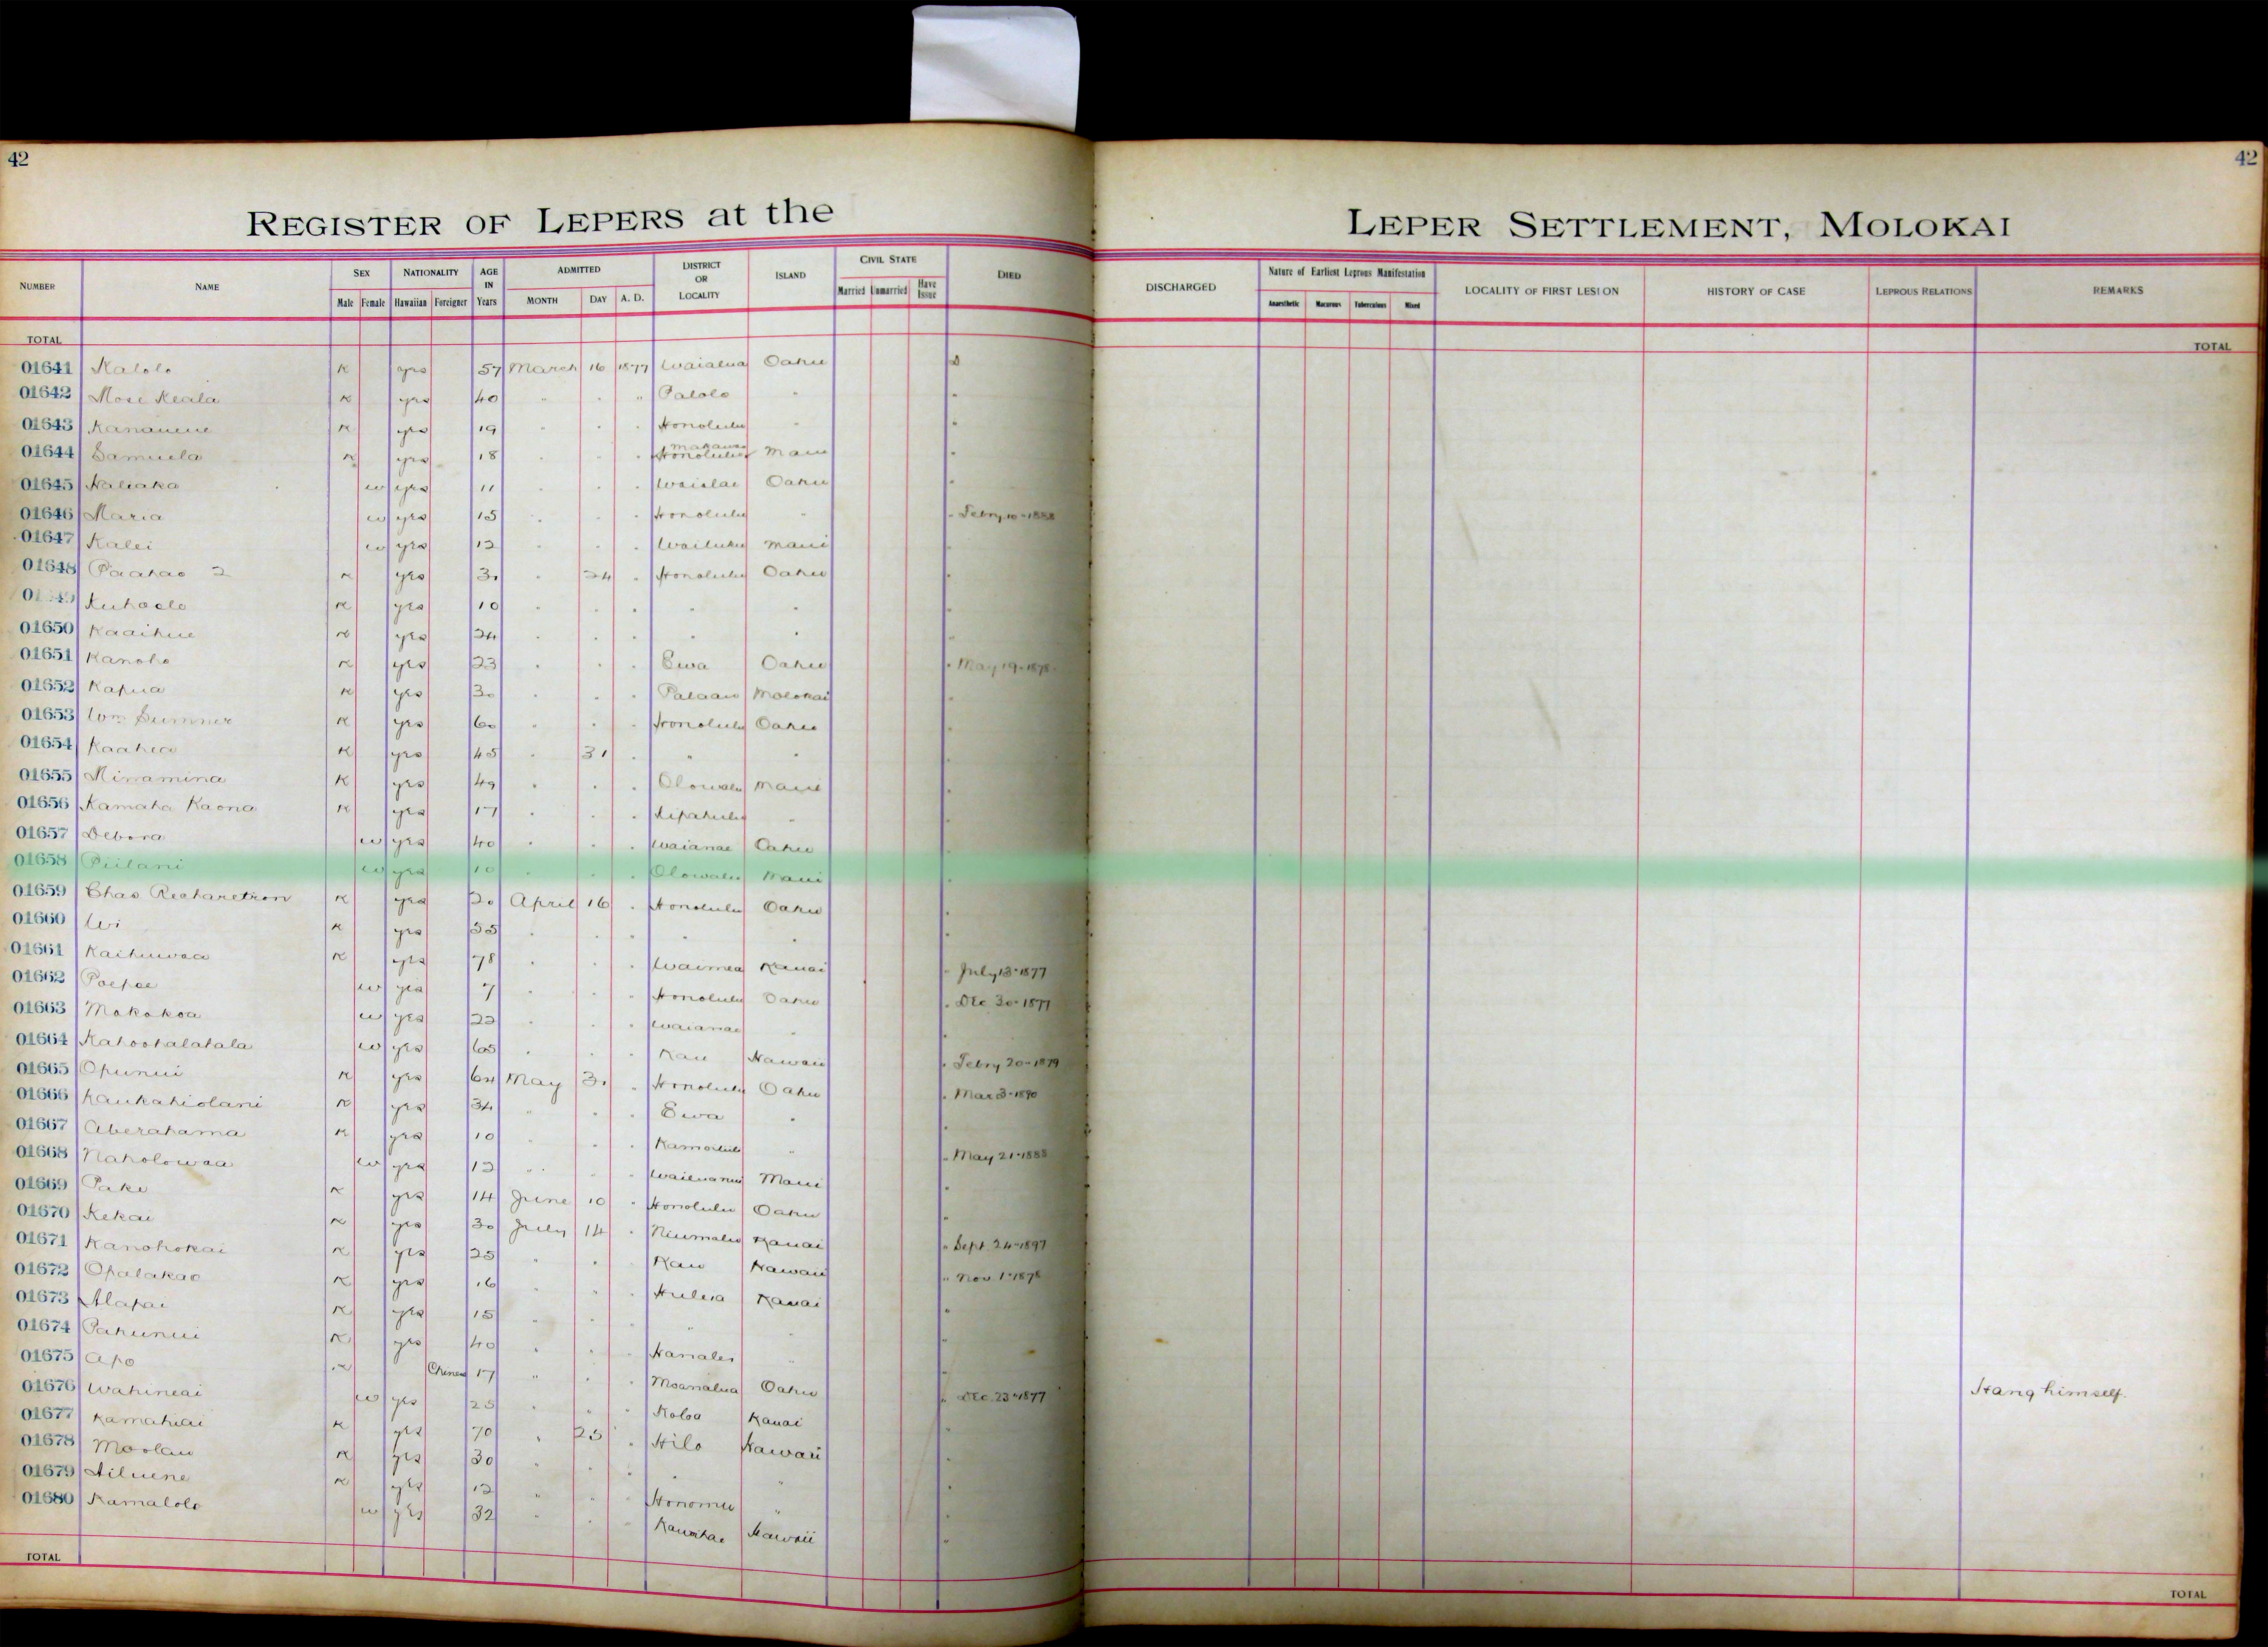 42
42
REGISTER OF LEPERS at the LEPER SETTLEMENT, MOLOKAI
NUMBER NAME SEX NATIONALITY AGE IN Years ADMITTED DISTRICT OR LOCALITY ISLAND CIVIL STATE DIED DISCHARGED Nature of Earliest Leprous Manifestation LOCALITY OF FIRST LESION HISTORY OF CASE LEPROUS RELATIONS REMARKS
Male Female Hawaiian Foreigner MONTH DAY A. D. Married Unmarried Have Issue Anaesthetic Macurous Tuberculous Mixed
TOTAL TOTAL
01641 Kalolo K yes 57 March 16 1877 Waialua Oahu D
01642 Mose Keala K yes 40 " " " Palolo " "
01643 Kananene K yes 19 " " " Honolulu " "
01644 Samuela K yes 18 " " " Makawao Honolulu Maui "
01645 Haliaka w yes 11 " " " Waialae Oahu "
01646 Maria w yes 15 " " " Honolulu " " Febry 10-1888
01647 Kalei w yes 12 " " " Wailuku Maui "
01648 Paahao 2 K yes 30 " 24 " Honolulu Oahu "
Kuhaelo K yes 10 " " " " " "
01650 Kaaihue K yes 24 " " " " " "
01651 Kanoho K yes 23 " " " Ewa Oahu " May 19-1878
01652 Kapua K yes 30 " " " Palaau Molokai "
01653 Wm Sumner K yes 60 " " " Honolulu Oahu "
01654 Kaahea K yes 45 " 31 " " " "
01655 Minamina K yes 49 " " " Olowalu Maui "
01656 Kamaha Kaona K yes 17 " " " Kipahulu " "
01657 Debora w yes 40 " " " Waianae Oahu "
01658 Piilani w yes 10 " " " Olowalu Maui "
01659 Chas Richaretson K yes 20 April 16 " Honolulu Oahu "
01660 Wi K yes 55 " " " " " "
01661 Kaihuwaa K yes 78 " " " Waimea Kauai " July 13-1877
01662 Poepoe w yes 7 " " " Honolulu Oahu " Dec 30-1877
01663 Makakoa w yes 22 " " " Waianae " "
01664 Kahoohalahala w yes 65 " " " Kau Hawaii " Febry 20-1879
01665 Opunui K yes 64 May 31 " Honolulu Oahu " Mar 3-1890
01666 Kaukahiolani K yes 34 " " " Ewa " "
01667 Aberahama K yes 10 " " " Kamoiliili " " May 21-1888
01668 Naholowaa w yes 12 " " " Wailuanui Maui "
01669 Pake K yes 14 June 10 " Honolulu Oahu "
01670 Kekai K yes 30 July 14 " Niumalu Kauai " Sept. 24-1897
01671 Kanohokai K yes 25 " " " Kau Hawaii " Nov 1-1878
01672 Opalakao K yes 16 " " " Huleia Kauai "
01673 Alapai K yes 15 " " " " " "
01674 Pahunui K yes 40 " " " Hanalei " "
01675 Apo K Chinese 17 " " " Moanalua Oahu " Dec. 23-1877 Hang himself.
01676 Wahineai w yes 25 " " " Koloa Kauai "
01677 Kamahiai K yes 70 " 25 " Hilo Hawaii "
01678 Moolau K yes 30 " " " " " "
01679 Hiluene K yes 12 " " " Honomu " "
01680 Kamalolo w yes 32 " " " Kawaihae Hawaii "
TOTAL TOTAL